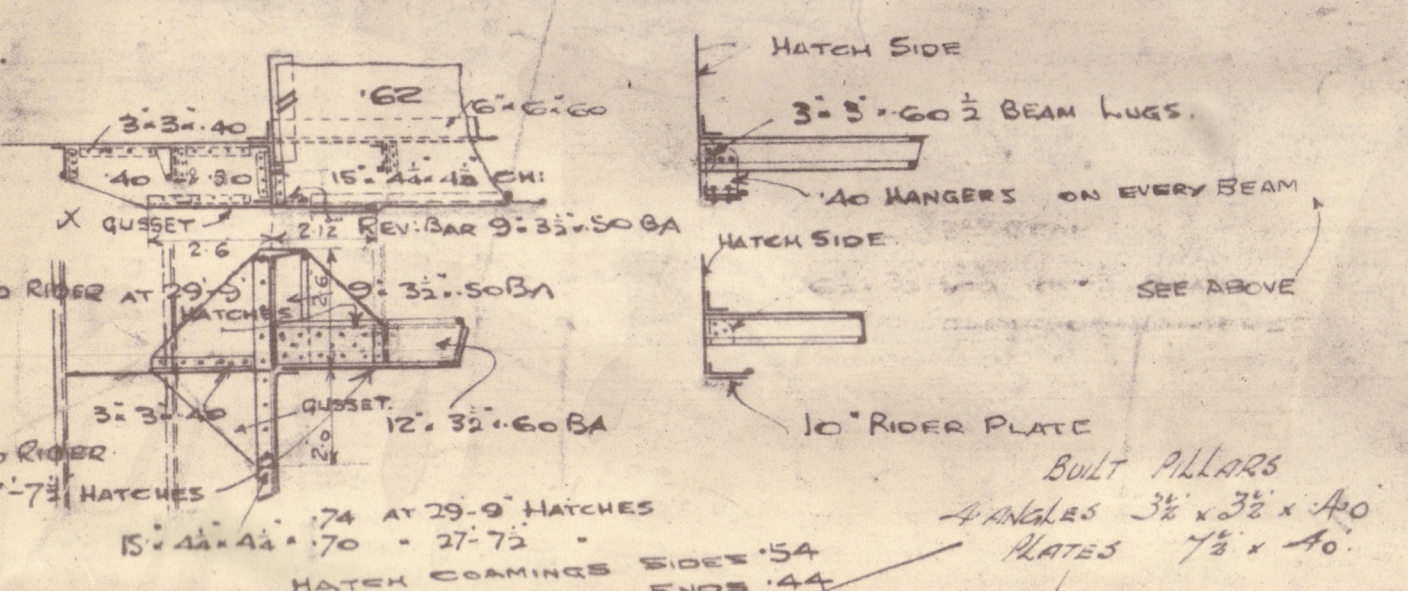 HATCH SIDE
·62
6"×6"×·60
3"×3"×·40
3"×3"×·60 ½ BEAM LUGS.
·40
15"×4¼"×4¼" CH:
·40 HANGERS ON EVERY BEAM
X GUSSET
2.12
REV: BAR 9"×3½"×·50 BA
2·6
HATCH SIDE
RIDER AT 29'-9"
HATCHES
2·6
9"× 3½"×·50 BA
SEE ABOVE
3"×3"×·40
GUSSET.
12"×3½"×·60 BA
10" RIDER PLATE
2·0
RIDER
-7½" HATCHES
BUILT PILLARS
·74 AT 29-9" HATCHES
4 ANGLES 3½" × 3½" × ·40
15"×4¼"×4¼"× ·70 " 27-7½ "
PLATES 7½" × ·40
HATCH COAMINGS SIDES ·54
ENDS ·44